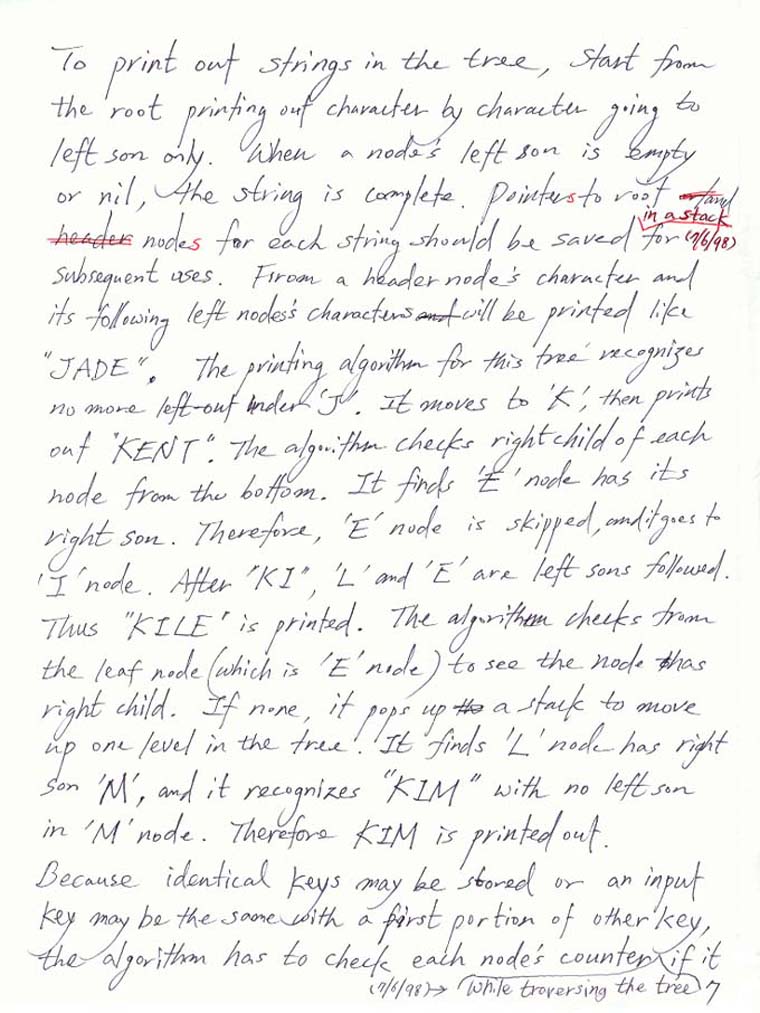 To print out strings in the tree, start from
the root printing out character by character going to
left son only. When a node's left son is empty
or nil, the string is complete. Pointers to root and
in a stack
header nodes for each string should be saved for (7/6/98)
subsequent uses. From a header node's character and
its following left nodes's characters and will be printed like
"JADE". The printing algorithm for this tree recognizes
no more left-out under 'J'. It moves to 'K', then prints
out "KENT". The algorithm checks right child of each
node from the bottom. It finds 'E' node has its
right son. Therefore, 'E' node is skipped, and it goes to
'I' node. After "KI", 'L' and 'E' are left sons followed.
Thus "KILE" is printed. The algorithm checks from
the leaf node (which is 'E' node) to see the node has
right child. If none, it pops up the a stack to move
up one level in the tree. It finds 'L' node has right
son 'M', and it recognizes "KIM" with no left son
in 'M' node. Therefore KIM is printed out.
Because identical keys may be stored or an input
key may be the same with a first portion of other key,
the algorithm has to check each node's counter if it
(7/6/98)→ (while troversing the tree) 7